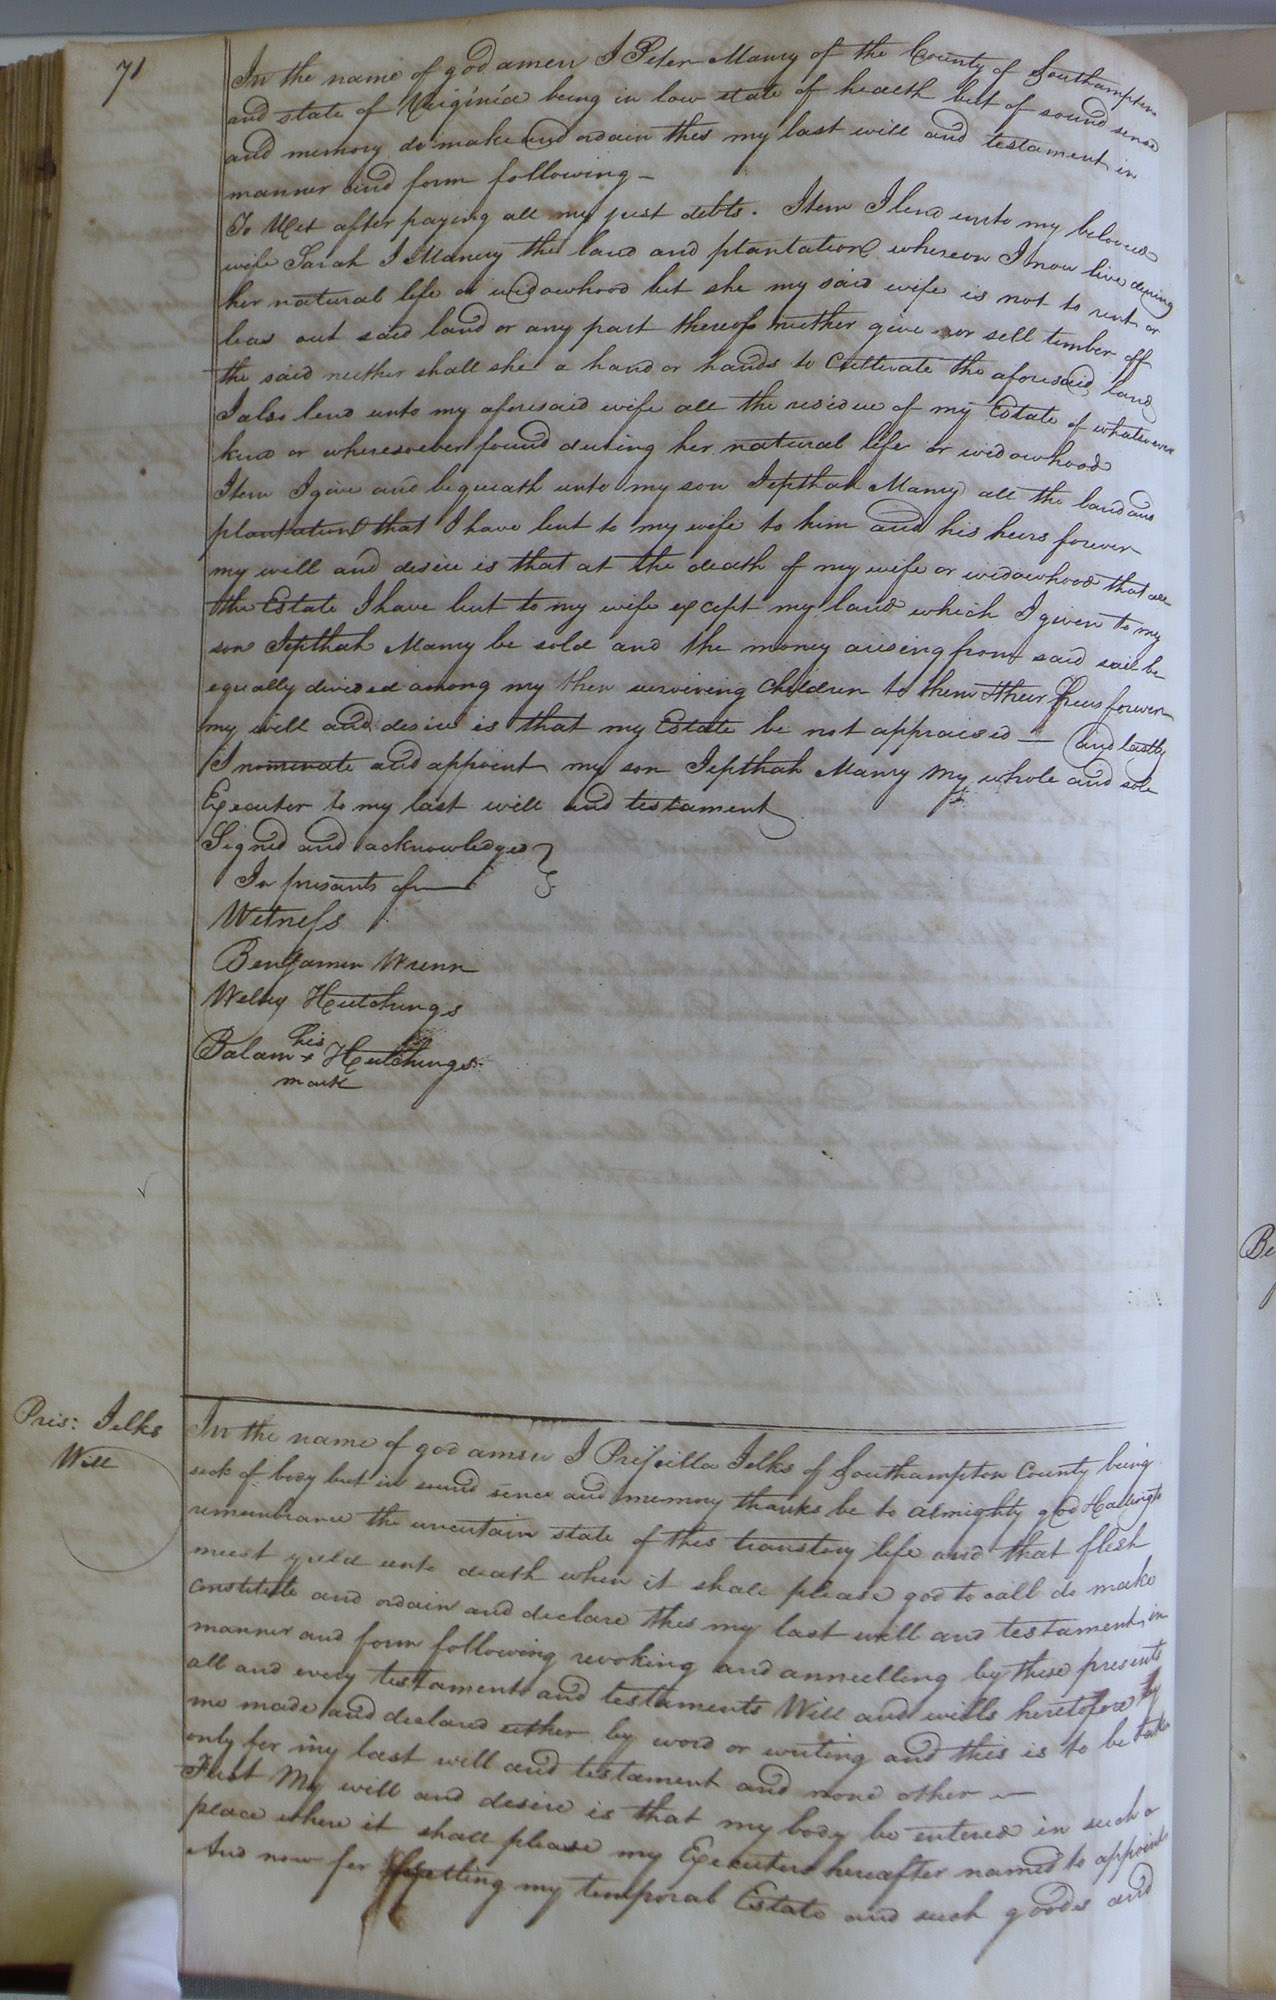 71
In the name of god amen I Peter Manry of the County of Southampton
and state of Virginia being in low state of health but of sound sense
and memory do make and ordain this my last will and testament in
manner and form following –
To Wit after paying all my just debts. Item I lend unto my beloved
wife Sarah J Manry the land and plantation whereon I now live during
her natural life or widowhood but she my said wife is not to rent or
leas out said land or any part thereof neither give nor sell timber off
the said neither shall she a hand or hands to cultivate the aforesaid land
I also lend unto my aforesaid wife all the residue of my Estate of whatever
kind or wheresoever found during her natural life or widowhood
Item I give and bequeath unto my son Jepthah Manry all the land and
plantation that I have lent to my wife to him and his heirs forever
my will and desire is that at the death of my wife or widowhood that all
the Estate I have lent to my wife except my land which I given to my
son Jepthah Manry be sold and the money arising from said sail be
equally divided among my then surviving Children to them & their heirs forever
my will and desire is that my Estate be not appraised – and lastly
I nominate and appoint my son Jepthah Manry my whole and sole
Executer to my last will and testament
Signed and acknowledged }
In presants of
Witness
Benjamin Wrenn
Welky Hutchings
his
Balam x Hutchings
mark
Pris: Jelks
Will
In the name of god amen I Prissilla Jelks of Southampton County being
sick of body but in sound sence and memory thanks be to almighty god
remembrance the uncertain state of this transtory life and that flesh
must yield unto death when it shall please god to call do make
constitute and ordain and declare this my last will and testament in
manner and form following revoking and annulling by these presents
all and every testament and testaments Will and wills heretofore by
me made and declared either by word or writing and this is to be taken
only for my last will and testament and none other –
First My will and desire is that my body be entered in such a
place where it shall please my Executers hereafter named to appoint
And now for settling my temporal Estate and such goods and
Be